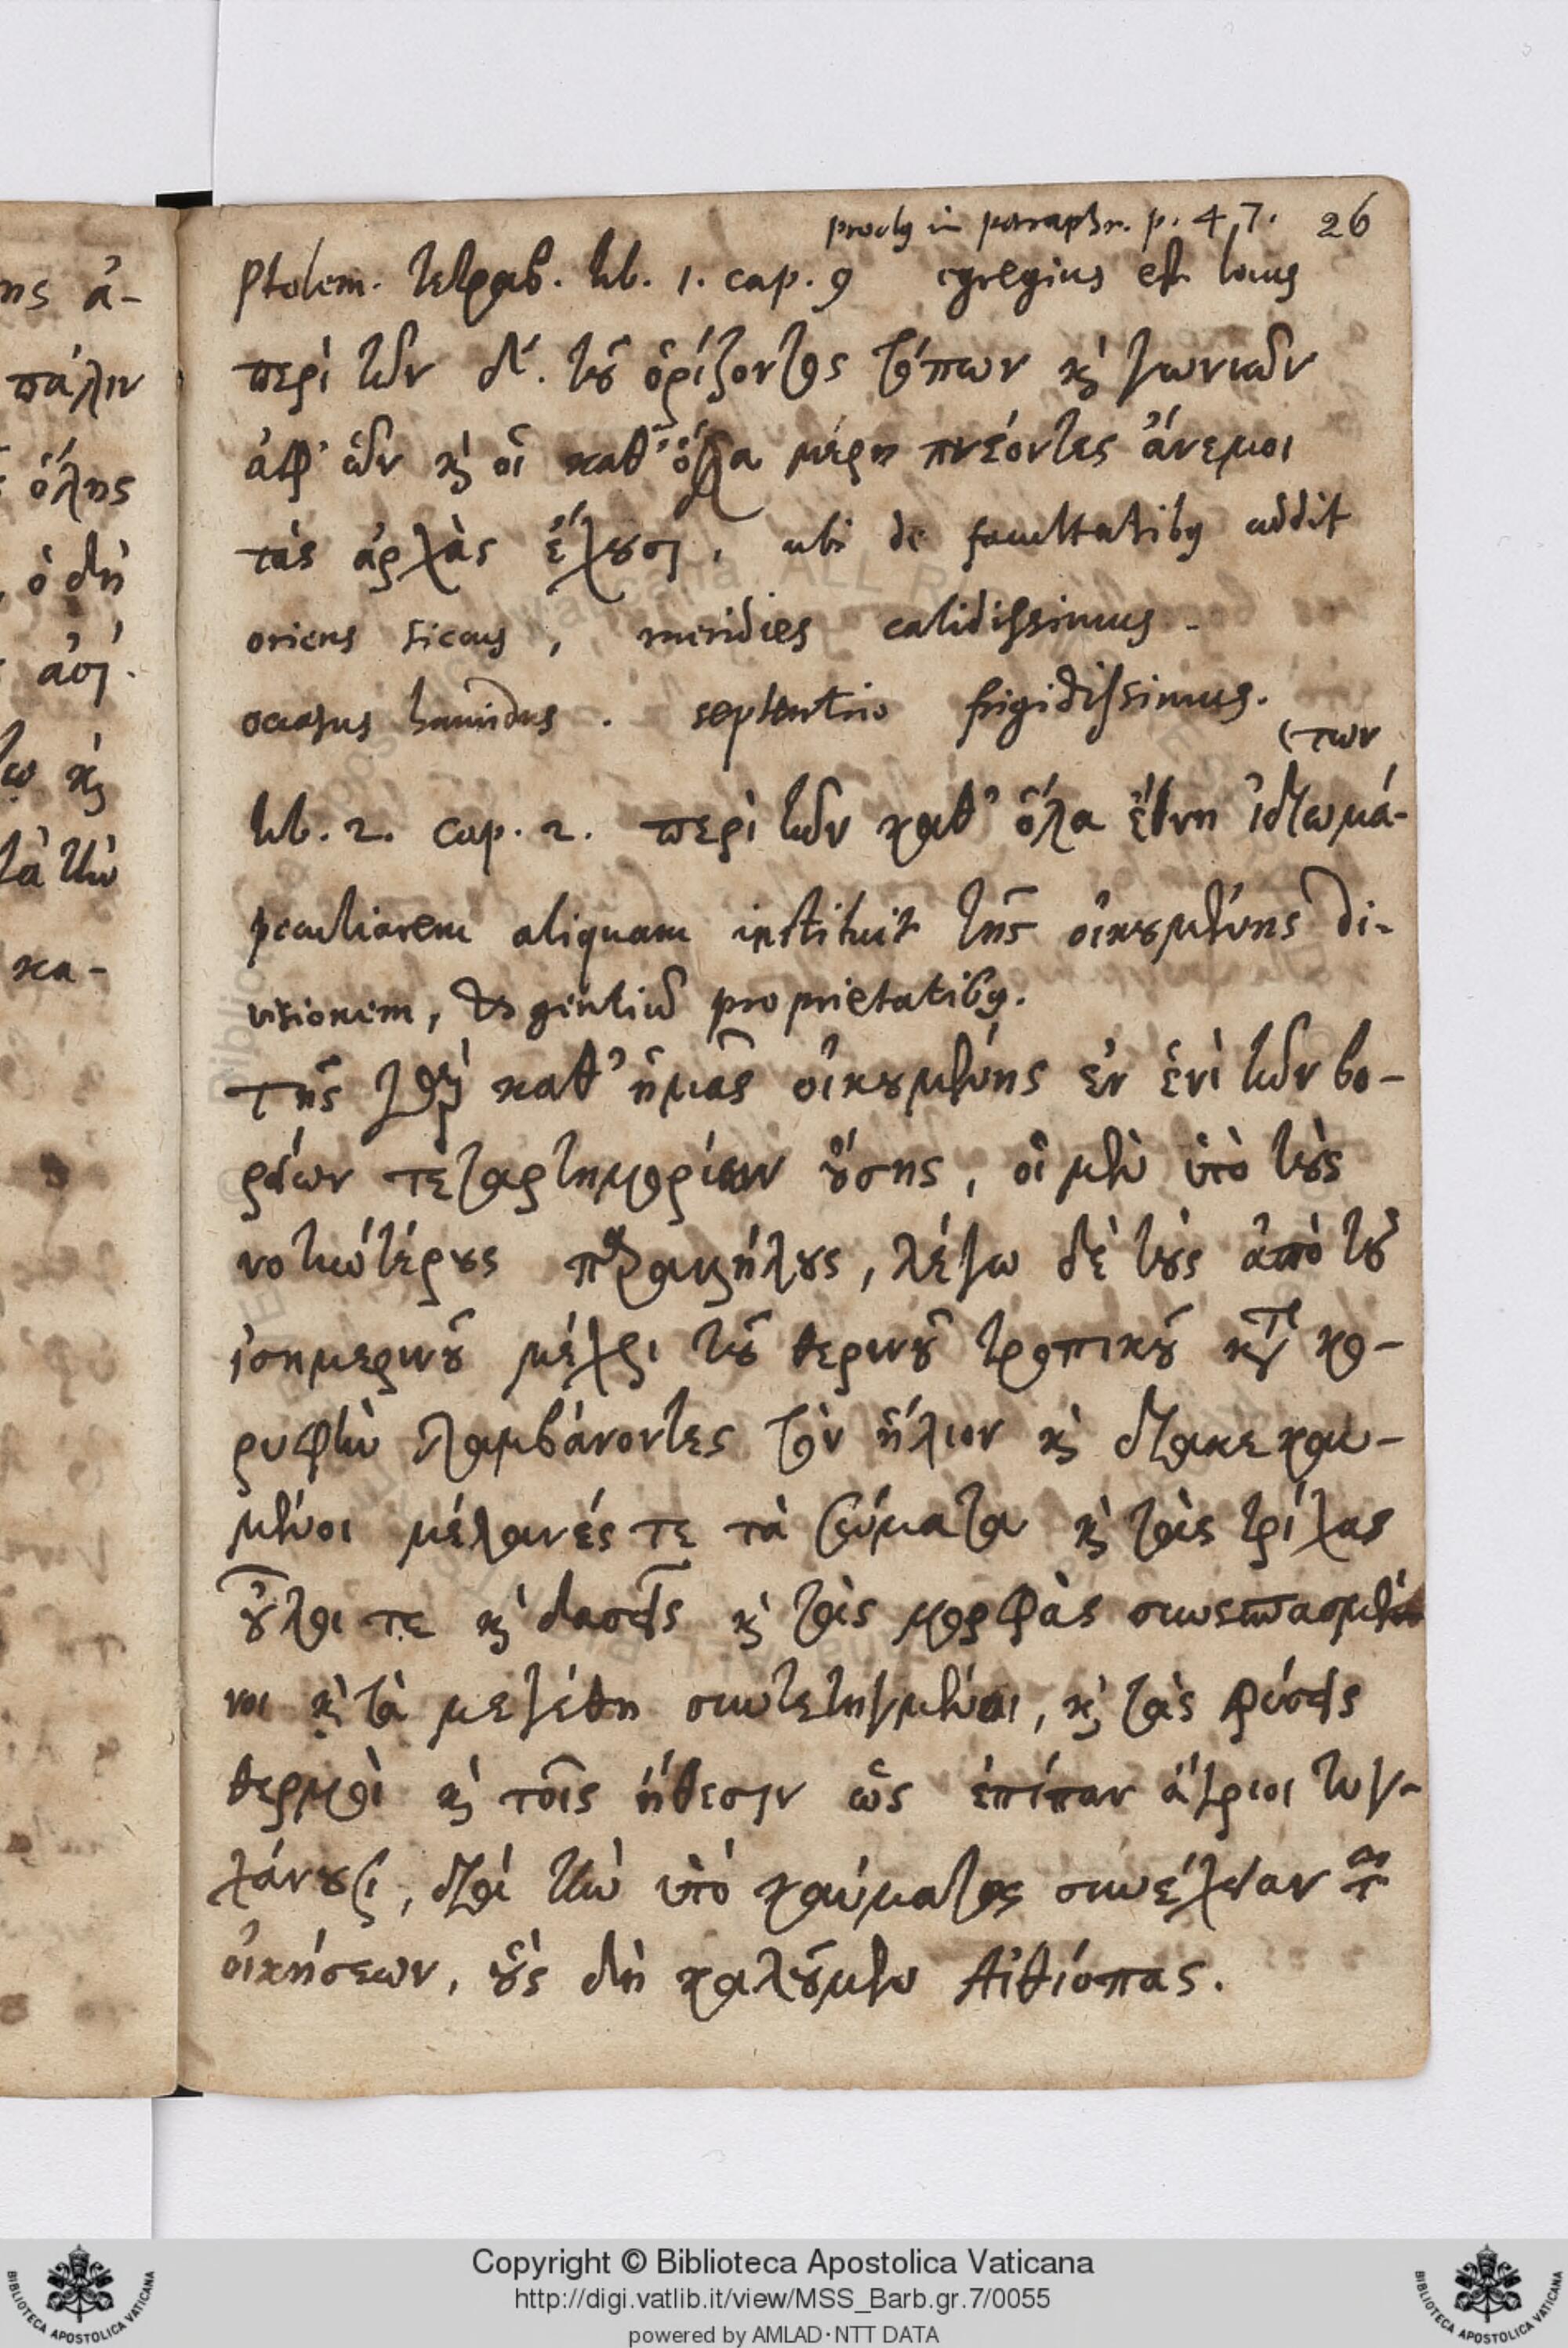 proclus in paraphr. p. 47. 26
Ptolem. τετραβ. lib. 1. cap. 9 egregius est locus
περὶ τῶν δ´. τοῦ ὁρίζοντος τόπων καὶ γωνιῶν
ἀφ' ὧν καὶ οἱ καθ' ὅλα μέρη πνέοντες ἄνεμοι
τὰς ἀρχὰς ἔχουσι, ubi de facultatibus addit
oriens siccus, meridies calidissimus.
occasus humidus. septentrio frigidissimus.
(των
lib. 2. cap. 2. περὶ τῶν καθ' ὅλα ἔθνη ἰδιωμά-
peculiarem aliquam instituit τῆς οἰκουμένης di-
visionem, & gentium proprietatibus.
τῆς γὰρ καθ' ἡμᾶς οἰκουμένης ἐν ἑνὶ τῶν βο-
ρείων τεταρτημορίων οὔσης, οἱ μὲν ὑπὸ τοὺς
νοτιωτέρους παραλλήλους, λέγω δὲ τοὺς ἀπὸ τοῦ
ἰσημερινοῦ μέχρι τοῦ θερινοῦ τροπικοῦ κατὰ κο-
ρυφὴν λαμβάνοντες τὸν ἥλιον καὶ διακεκαυ-
μένοι μέλανές τε τὰ σώματα καὶ τὰς τρίχας
οὖλοι τε καὶ δασεῖς καὶ τὰς μορφὰς συνεσπασμέ
νοι καὶ τὰ μεγέθη συντετηγμένοι, καὶ τὰς φύσεις
θερμοὶ καὶ τοῖς ἤθεσιν ὡς ἐπίπαν ἄγριοι τυγ-
χάνουσι, διὰ τὴν ὑπὸ καύματος συνέχειαν τῶν
οἰκήσεων, οὓς δὴ καλοῦμεν Αἰθίοπας.
ης ἀ-
πάλιν
ὅλης
ὁ δὴ
κα-
Copyright © Biblioteca Apostolica Vaticana
http://digi.vatlib.it/view/MSS_Barb.gr.7/0055
powered by AMLAD·NTT DATA
BIBLIOTECA APOSTOLICA VATICANA
BIBLIOTECA APOSTOLICA VATICANA